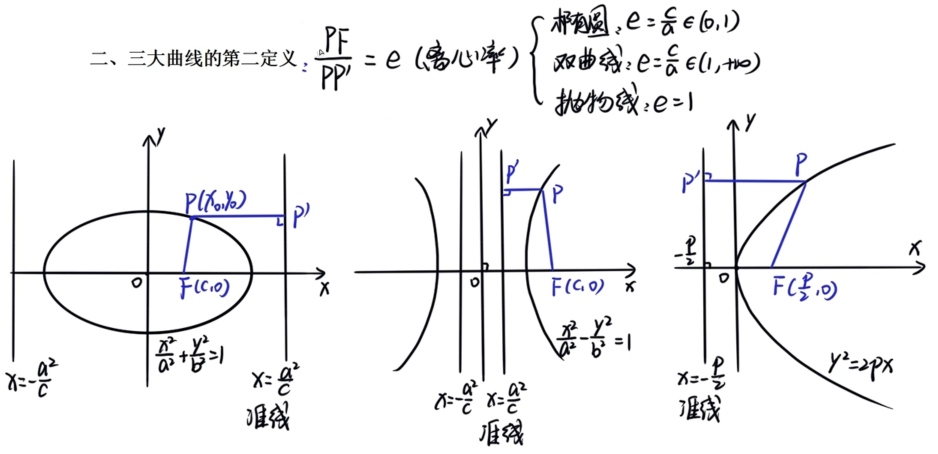 二、三大曲线的第二定义: PF/PP' = e (离心率)
椭圆: e = c/a ∈ (0,1)
双曲线: e = c/a ∈ (1,+∞)
抛物线: e = 1
y
P(x₀,y₀)
P'
O
F(c,0)
x
x²/a² + y²/b² = 1
x = -a²/c
x = a²/c
准线
y
P'
P
O
F(c,0)
x
x²/a² - y²/b² = 1
x = -a²/c
x = a²/c
准线
y
P'
P
-p/2
O
F(p/2,0)
x
y² = 2px
x = -p/2
准线